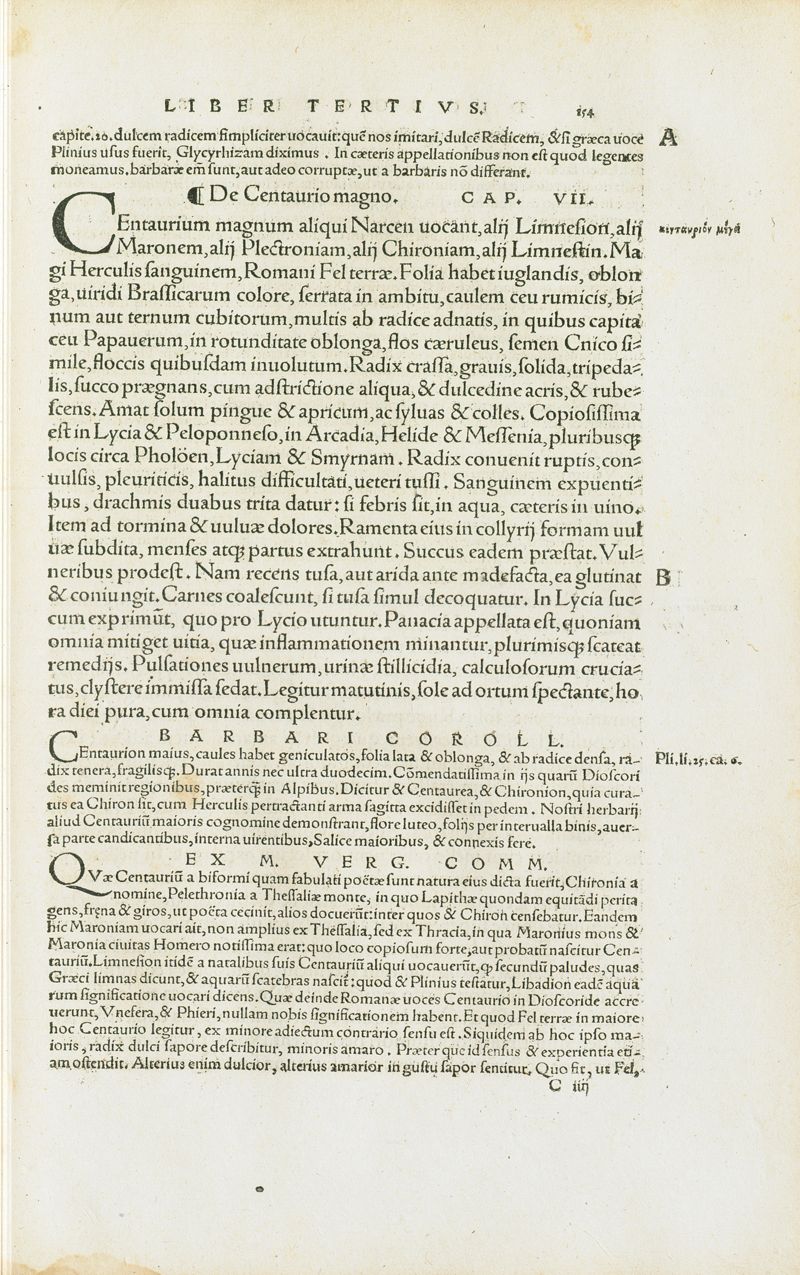 LIBER TERTIVS. 154
capite.20. dulcem radicem simpliciter uocauit: quē nos imitari, dulcē Radicem, & si græca uoce A
Plinius usus fuerit, Glycyrhizam diximus. In cæteris appellationibus non est quod legentes
moneamus. barbaræ em̄ sunt, aut adeo corruptæ, ut a barbaris nō differant.
¶ De Centaurio magno. CAP. VII.
CEntaurium magnum aliqui Narcen uocant, alij Limnesion, alij κενταυρίον μέγα
Maronem, alij Plectroniam, alij Chironiam, alij Limnestin. Ma
gi Herculis sanguinem, Romani Fel terræ. Folia habet iuglandis, oblon
ga, uiridi Brassicarum colore, serrata in ambitu, caulem ceu rumicis, bi-
num aut ternum cubitorum, multis ab radice adnatis, in quibus capita
ceu Papauerum, in rotunditate oblonga, flos cæruleus, semen Cnico si-
mile, floccis quibusdam inuolutum. Radix crassa, grauis, solida, tripeda-
lis, succo prægnans, cum adstrictione aliqua, & dulcedine acris, & rube-
scens. Amat solum pingue & apricum, ac syluas & colles. Copiosissima
est in Lycia & Peloponneso, in Arcadia, Helide & Messenia, pluribusq́;
locis circa Pholoën, Lyciam & Smyrnam. Radix conuenit ruptis, con-
uulsis, pleuriticis, halitus difficultati, ueteri tussi. Sanguinem expuenti-
bus, drachmis duabus trita datur: si febris sit, in aqua, cæteris in uino.
Item ad tormina & uuluæ dolores. Ramenta eius in collyrij formam uul
uæ subdita, menses atq́; partus extrahunt. Succus eadem præstat. Vul-
neribus prodest. Nam recens tusa, aut arida ante madefacta, ea glutinat B
& coniungit. Carnes coalescunt, si tusa simul decoquatur. In Lycia suc-
cum exprimūt, quo pro Lycio utuntur. Panacia appellata est, quoniam
omnia mitiget uitia, quæ inflammationem minantur, plurimisq́; scateat
remedijs. Pulsationes uulnerum, urinæ stillicidia, calculosorum crucia-
tus, clystere immissa sedat. Legitur matutinis, sole ad ortum spectante, ho
ra diei pura, cum omnia complentur.
BARBARI COROLL.
CEntaurion maius, caules habet geniculatos, folia lata & oblonga, & ab radice densa, ra- Pli. li. 25. ca. 6.
dix tenera, fragilisq́;. Durat annis nec ultra duodecim. Cōmendatissima in ijs quarū Dioscori
des meminit regionibus, præterq̃ in Alpibus. Dicitur & Centaurea, & Chironion, quia cura-
tus ea Chiron sit, cum Herculis pertractanti arma sagitta excidisset in pedem. Nostri herbarij
aliud Centauriū maioris cognomine demonstrant, flore luteo, folijs per interualla binis, auer-
sa parte candicantibus, interna uirentibus, Salice maioribus, & connexis fere.
EX M. VERG. COMM.
QVæ Centauriū a biformi quam fabulati poëtæ sunt natura eius dicta fuerit, Chironia a
nomine, Pelethronia a Thessaliæ monte, in quo Lapithæ quondam equitādi perita
gens, frena & giros, ut poëta cecinit, alios docuerūt: inter quos & Chiron censebatur. Eandem
hic Maroniam uocari ait, non amplius ex Thessalia, sed ex Thracia, in qua Maronius mons &
Maronia ciuitas Homero notissima erat: quo loco copiosum forte, aut probatū nascitur Cen-
tauriū. Limnesion itidē a natalibus suis Centauriū aliqui uocauerūt, q̈ secundū paludes, quas
Græci limnas dicunt, & aquarū scatebras nascit̃: quod & Plinius testatur, Libadion eadē aqua
rum significatione uocari dicens. Quæ deinde Romanæ uoces Centaurio in Dioscoride accre
uerunt, Vnefera, & Phieri, nullam nobis significationem habent. Et quod Fel terræ in maiore
hoc Centaurio legitur, ex minore adiectum contrario sensu est. Siquidem ab hoc ipso ma-
ioris, radix dulci sapore describitur, minoris amaro. Præter quē id sensus & experientia eti-
am ostendit. Alterius enim dulcior, alterius amarior in gustu sapor sentitur. Quo fit, ut Fel,
C iiij